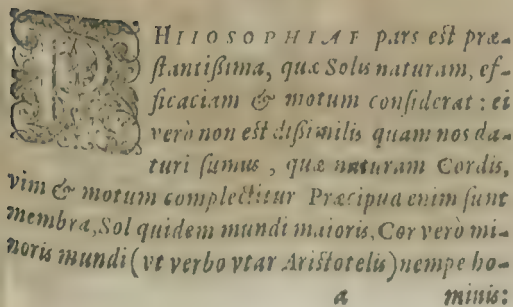 PHIIOSOPHIAE pars est præ-
stantißima, quæ Solis naturam, ef-
ficaciam & motum considerat: ei
verò non est dißimilis quam nos da-
turi sumus, quæ naturam Cordis,
vim & motum complectitur Præcipua enim sunt
membra, Sol quidem mundi maioris, Cor verò mi-
noris mundi (vt verbo vtar Aristotelis) nempe ho-
a minis: